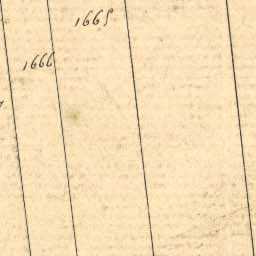 1665
1666